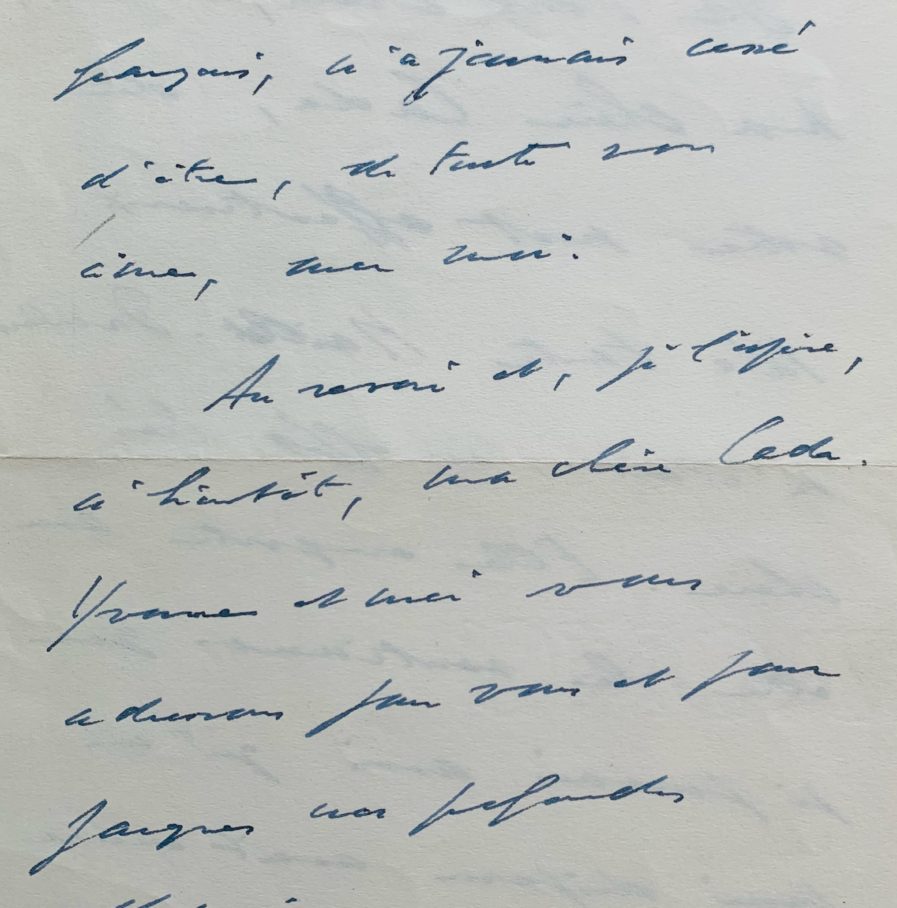 français, n'a jamais cessé
d'être, de toute son
âme, avec moi.
Au revoir et, je l'espère,
à bientôt, ma chère Cada.
Yvonne et moi vous
adressons pour vous et pour
Jacques nos profondes